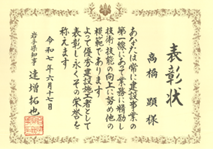 表彰状
高橋 顕 様
あなたは常に建設事業の
第一線にあって業務に精励し
技術技能の向上に努め他の
模範であります
よって優秀建設施工者として
表彰し永くその栄誉を
称えます
令和七年六月十七日
岩手県知事 達増拓也